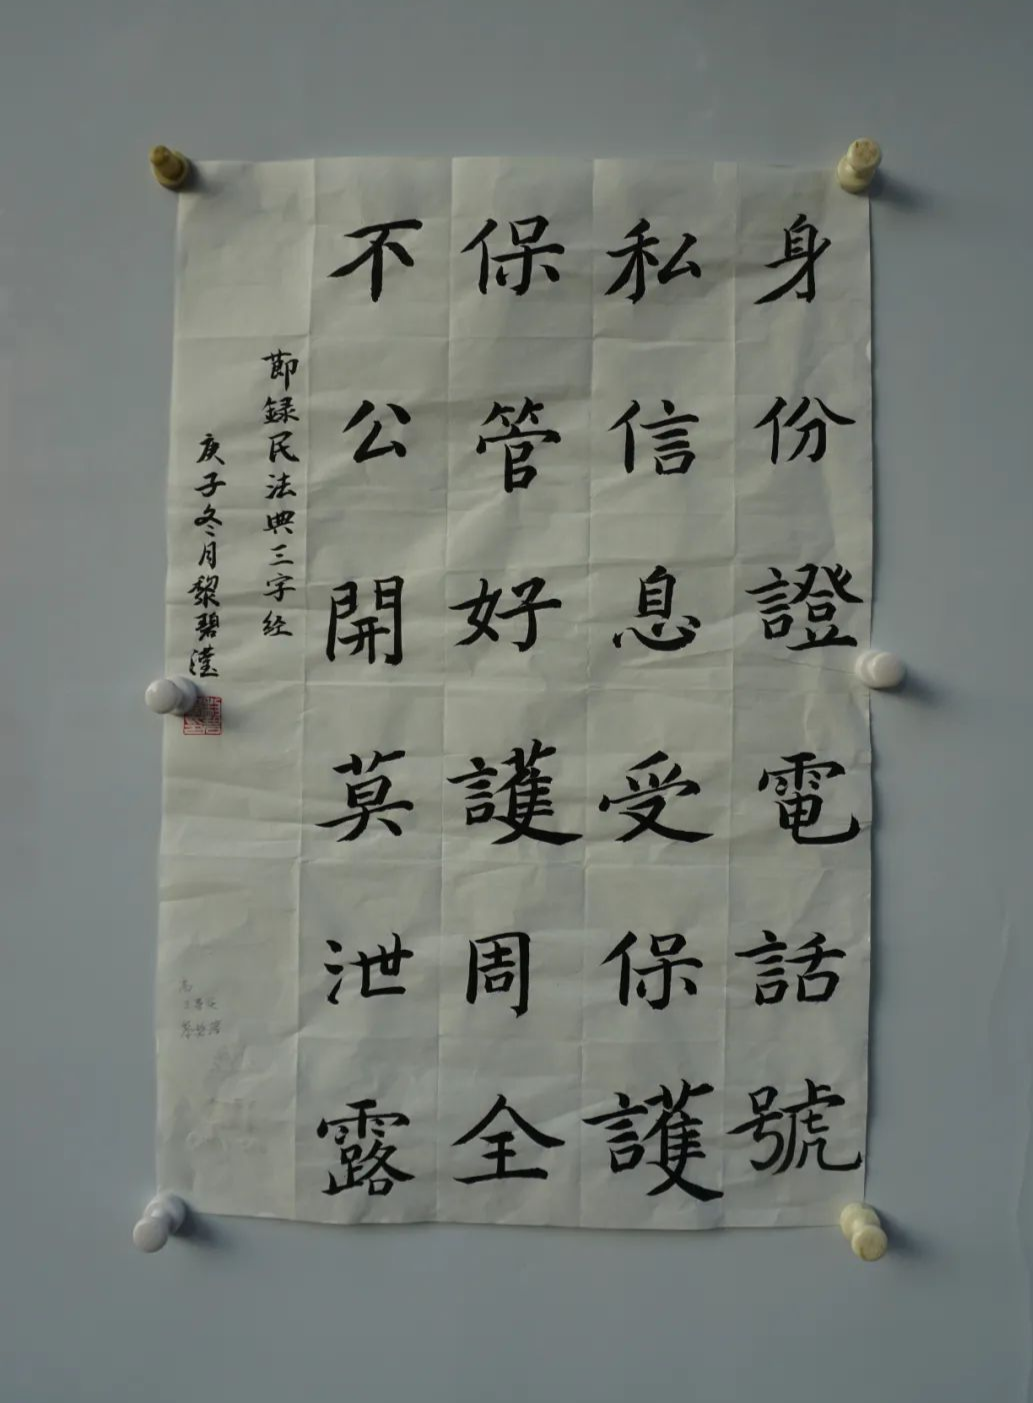 身份證電話號
私信息受保護
保管好護周全
不公開莫泄露
節録民法典三字经
庚子冬月黎碧滢